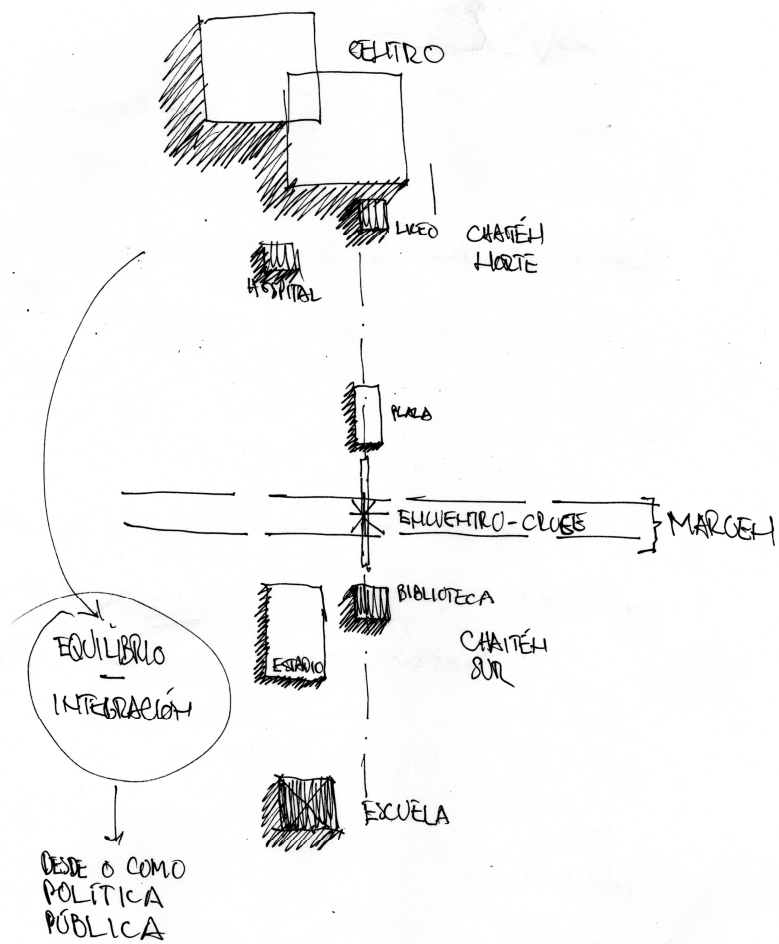 CENTRO
LICEO
CHAITÉN
NORTE
HOSPITAL
PLAZA
ENCUENTRO-CRUCE
MARGEN
BIBLIOTECA
CHAITÉN
SUR
ESTADIO
EQUILIBRIO
—
INTEGRACIÓN
ESCUELA
DESDE O COMO
POLÍTICA
PÚBLICA